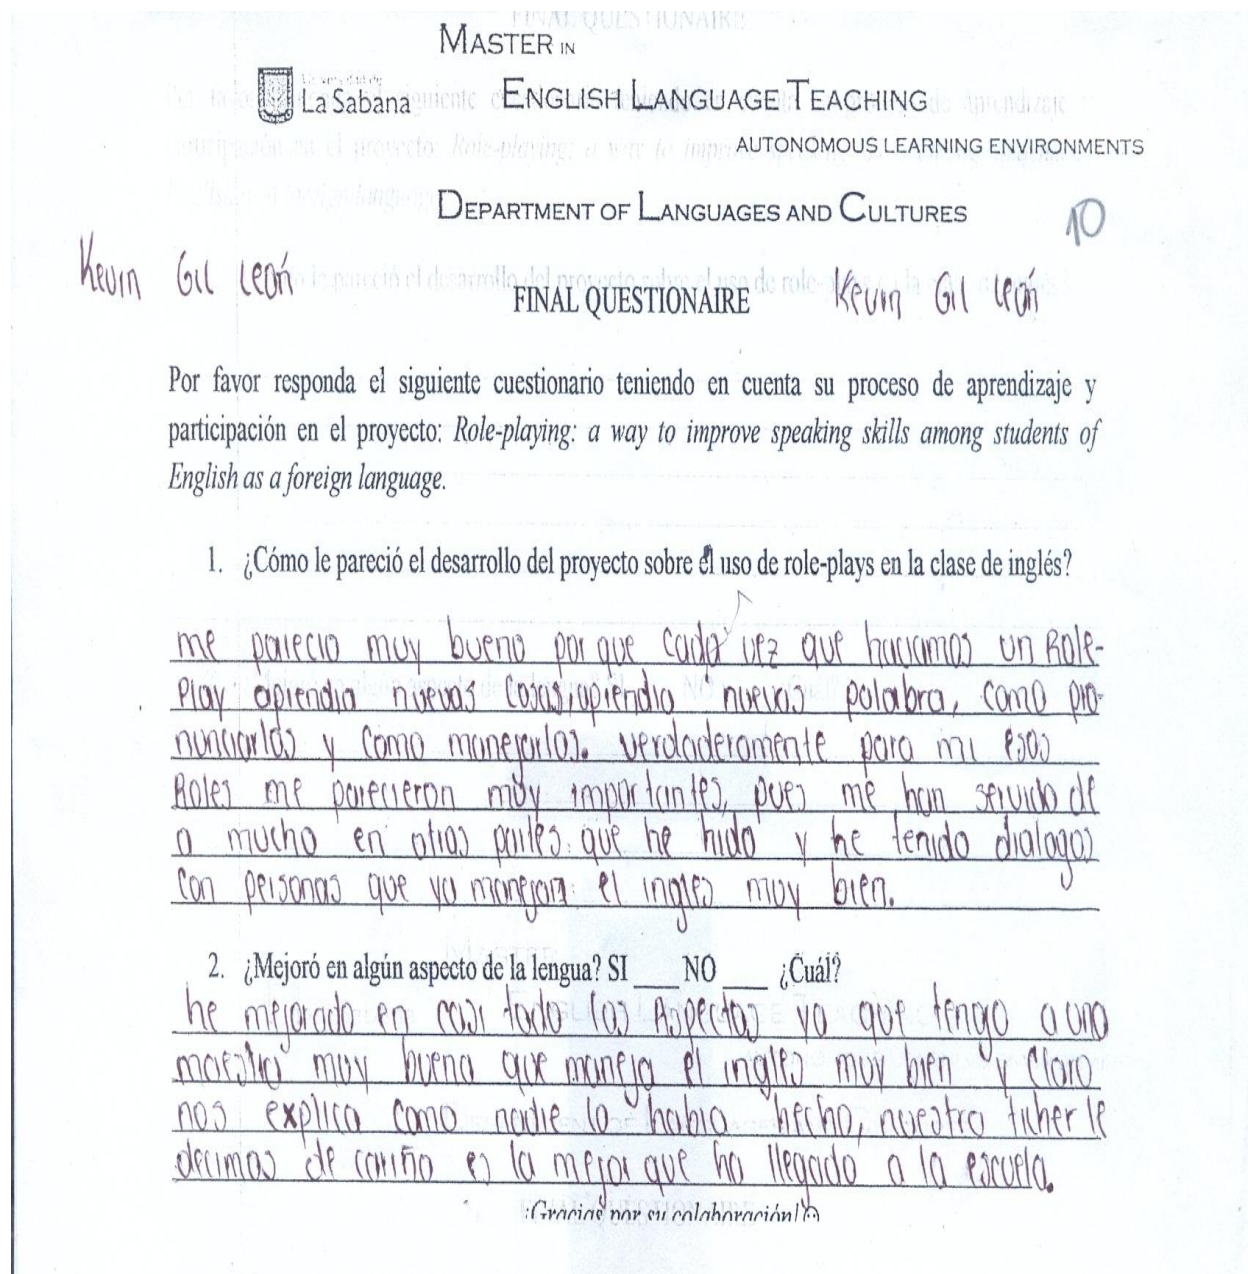 MASTER IN
Universidad de
La Sabana
ENGLISH LANGUAGE TEACHING
AUTONOMOUS LEARNING ENVIRONMENTS
DEPARTMENT OF LANGUAGES AND CULTURES
10
Kevin Gil León
FINAL QUESTIONAIRE
Kevin Gil León
Por favor responda el siguiente cuestionario teniendo en cuenta su proceso de aprendizaje y
participación en el proyecto: Role-playing: a way to improve speaking skills among students of
English as a foreign language.
1. ¿Cómo le pareció el desarrollo del proyecto sobre el uso de role-plays en la clase de inglés?
me parecio muy bueno por que cada vez que haciamos un Role-
Play aprendia nuevas cosas, aprendia nuevas palabra, como pro-
nunciarlas y como manejarlas. verdaderamente para mi esos
Roles me parecieron muy importantes, pues me han servido de
a mucho en otras partes que he hido y he tenido dialogos
con personas que ya manejan el ingles muy bien.
2. ¿Mejoró en algún aspecto de la lengua? SI ___ NO ___ ¿Cuál?
he mejorado en casi todo los aspectos ya que tengo a una
maestra muy buena que maneja el ingles muy bien y claro
nos explica como nadie lo habia hecho, nuestra ticher le
decimos de cariño es la mejor que ha llegado a la escuela.
¡Gracias por su colaboración!☺